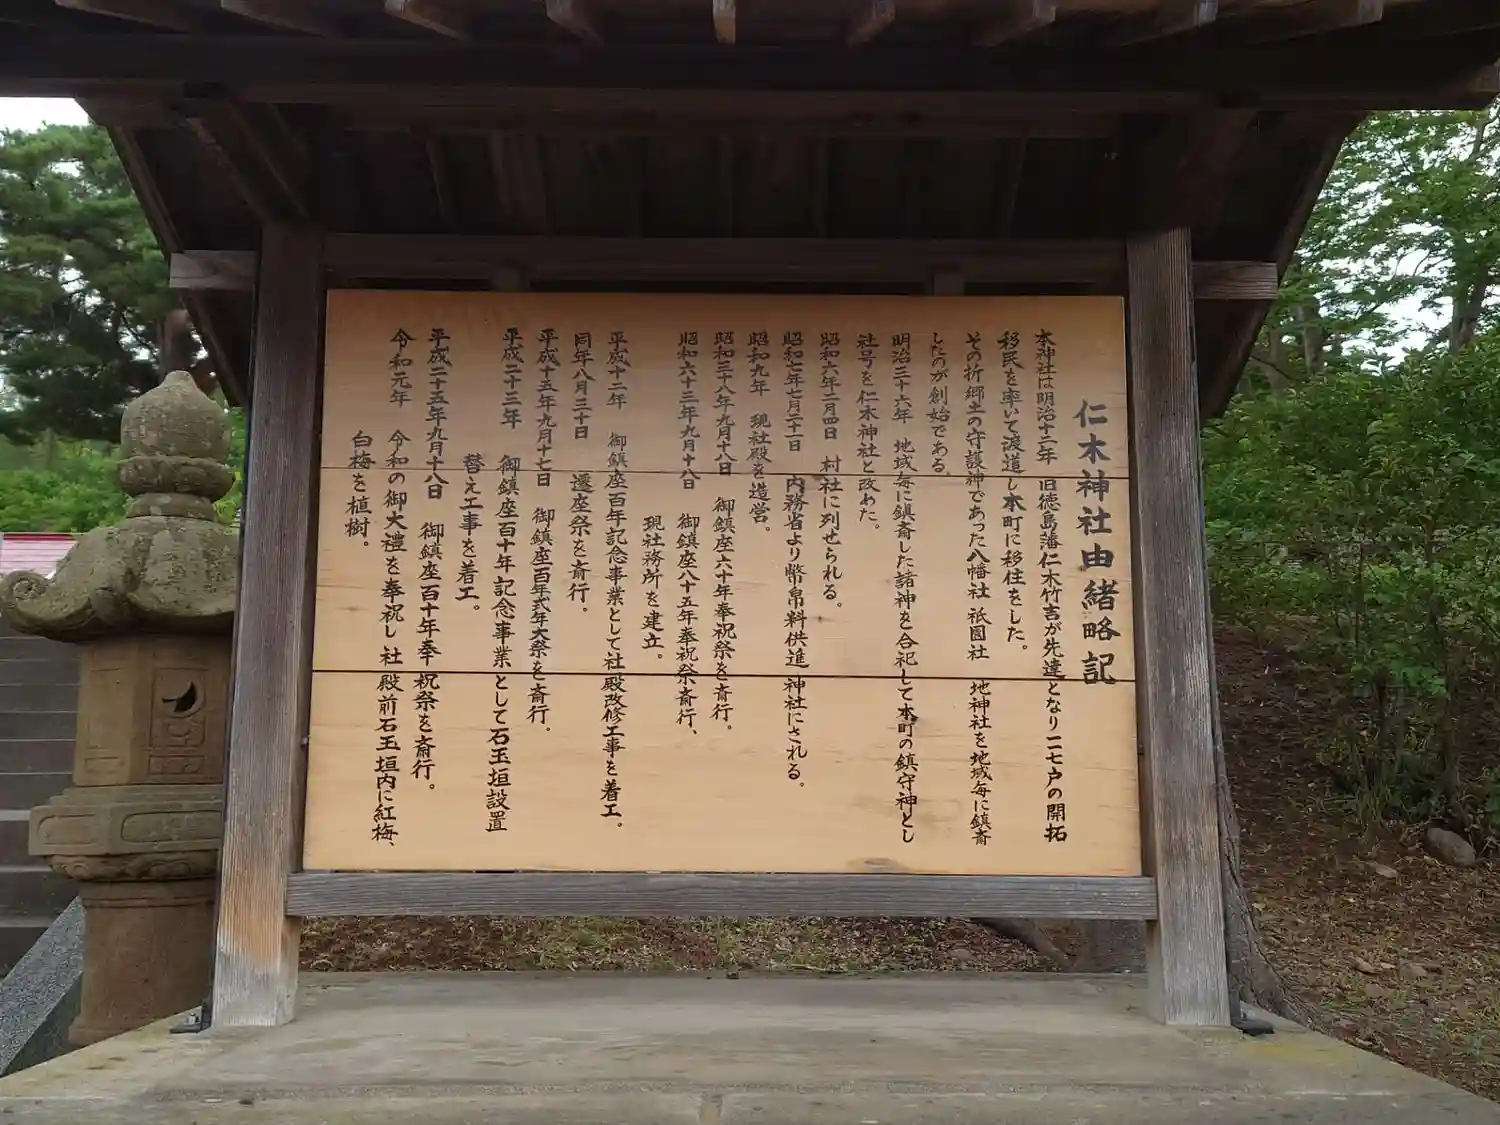 仁木神社由緒略記
本神社は明治十二年 旧徳島藩仁木竹吉が先達となり一二七戸の開拓
移民を率いて渡道し本町に移住をした。
その折郷土の守護神であった八幡社 祇園社 地神社を地域毎に鎮斎
したのが創始である。
明治三十六年 地域毎に鎮斎した諸神を合祀して本町の鎮守神とし
社号を仁木神社と改めた。
昭和六年二月四日 村社に列せられる。
昭和七年七月二十一日 内務省より幣帛料供進神社にされる。
昭和九年 現社殿を造営。
昭和三十八年九月十八日 御鎮座六十年奉祝祭を斎行。
昭和六十三年九月十八日 御鎮座八十五年奉祝祭斎行、
現社務所を建立。
平成十二年 御鎮座百年記念事業として社殿改修工事を着工。
同年八月三十日 遷座祭を斎行。
平成十五年九月十七日 御鎮座百年式年大祭を斎行。
平成二十三年 御鎮座百十年記念事業として石玉垣設置
替え工事を着工。
平成二十五年九月十八日 御鎮座百十年奉祝祭を斎行。
令和元年 令和の御大禮を奉祝し社殿前石玉垣内に紅梅、
白梅を植樹。